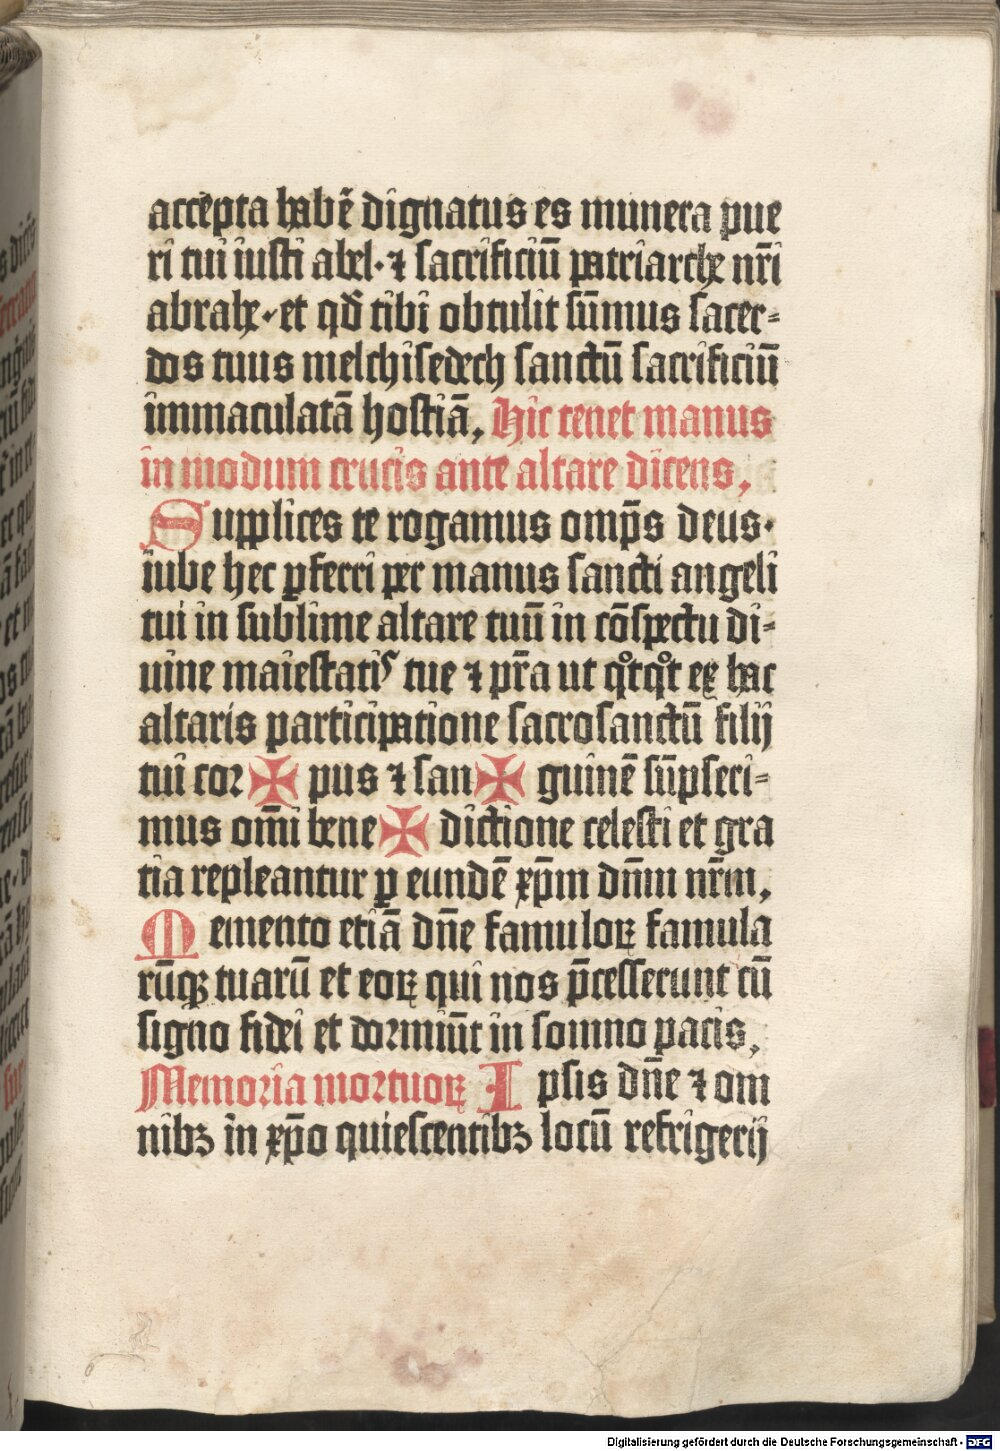 accepta habẽ dignatus es munera pue
ri tui iusti abel· ⁊ sacrificiũ patriarche nr̃i
abrahe· et qď tibi obtulit sũmus sacer⸗
dos tuus melchisedech sanctũ sacrificiũ
immaculatã hostiã, Hic tenet manus
in modum crucis ante altare dicens,
Supplices te rogamus omp̃s deus·
iube hec ꝑferri per manus sancti angeli
tui in sublime altare tuũ in cõspectu di⸗
uine maiestatis tue ⁊ pr̃a ut qͦtqͦt ex hac
altaris participatione sacrosanctũ filij
tui cor ✠ pus ⁊ san ✠ guinẽ sũpseri⸗
mus om̃i bene ✠ dictione celesti et gra
tia repleantur ꝑ eundẽ xp̃m dñm nr̃m,
Memento etiã dñe famuloꝝ famula
rũqꝫ tuarũ et eoꝝ qui nos p̃cesserunt cũ
signo fidei et dormiũt in somno pacis,
Memoria mortuoꝝ Ipsis dñe ⁊ om
nibꝫ in xp̃o quiescentibꝫ locũ refrigerij
Digitalisierung gefördert durch die Deutsche Forschungsgemeinschaft - DFG